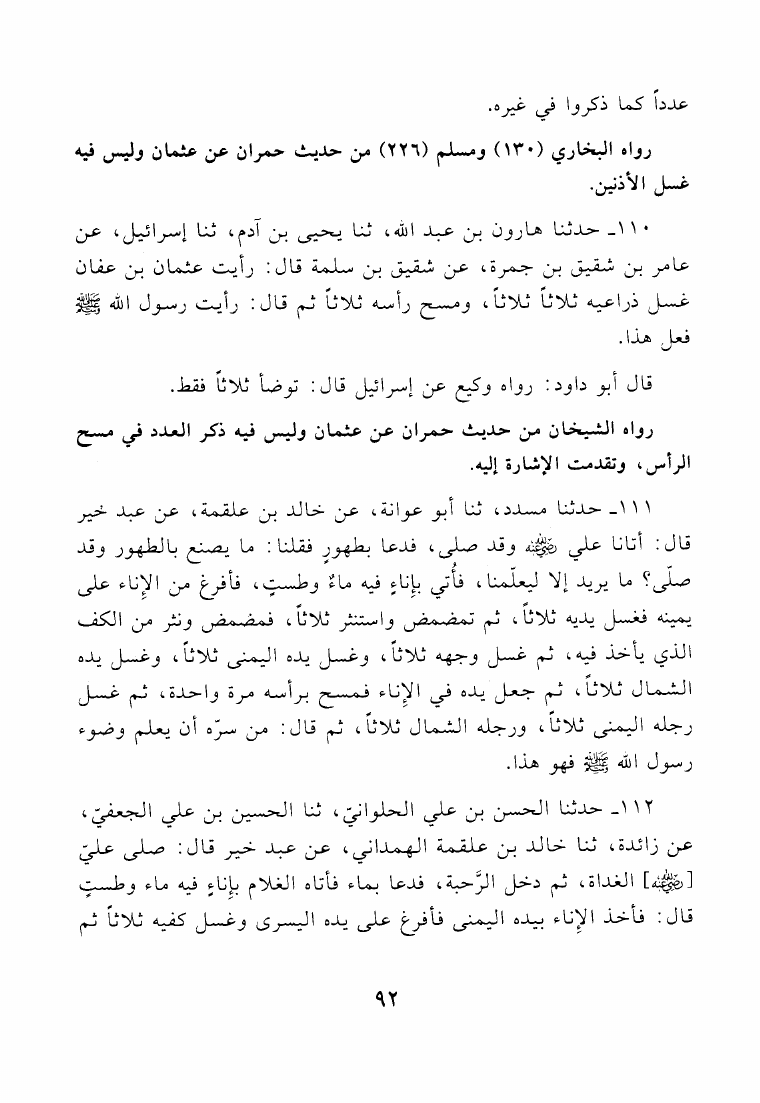 عدداً كما ذكروا في غيره.
رواه البخاري (١٣٠) ومسلم (٢٢٦) من حديث حمران عن عثمان وليس فيه
غسل الأذنين.
١١٠ـ حدثنا هارون بن عبد الله، ثنا يحيى بن آدم، ثنا إسرائيل، عن
عامر بن شقيق بن جمرة، عن شقيق بن سلمة قال: رأيت عثمان بن عفان
غسل ذراعيه ثلاثاً ثلاثاً، ومسح رأسه ثلاثاً ثم قال: رأيت رسول الله ﷺ
فعل هذا.
قال أبو داود: رواه وكيع عن إسرائيل قال: توضأ ثلاثاً فقط.
رواه الشيخان من حديث حمران عن عثمان وليس فيه ذكر العدد في مسح
الرأس، وتقدمت الإشارة إليه.
١١١ـ حدثنا مسدد، ثنا أبو عوانة، عن خالد بن علقمة، عن عبد خير
قال: أتانا علي رضي الله عنه وقد صلى، فدعا بطهورٍ فقلنا: ما يصنع بالطهور وقد
صلّى؟ ما يريد إلا ليعلّمنا، فأُتي بإناءٍ فيه ماءٌ وطستٍ، فأفرغ من الإناء على
يمينه فغسل يديه ثلاثاً، ثم تمضمض واستنثر ثلاثاً، فمضمض ونثر من الكف
الذي يأخذ فيه، ثم غسل وجهه ثلاثاً، وغسل يده اليمنى ثلاثاً، وغسل يده
الشمال ثلاثاً، ثم جعل يده في الإناء فمسح برأسه مرة واحدة، ثم غسل
رجله اليمنى ثلاثاً، ورجله الشمال ثلاثاً، ثم قال: من سرّه أن يعلم وضوء
رسول الله ﷺ فهو هذا.
١١٢ـ حدثنا الحسن بن علي الحلوانيّ، ثنا الحسين بن علي الجعفيّ،
عن زائدة، ثنا خالد بن علقمة الهمداني، عن عبد خير قال: صلى عليّ
[رضي الله عنه] الغداة، ثم دخل الرَّحبة، فدعا بماء فأتاه الغلام بإناءٍ فيه ماء وطستٍ
قال: فأخذ الإناء بيده اليمنى فأفرغ على يده اليسرى وغسل كفيه ثلاثاً ثم
٩٢